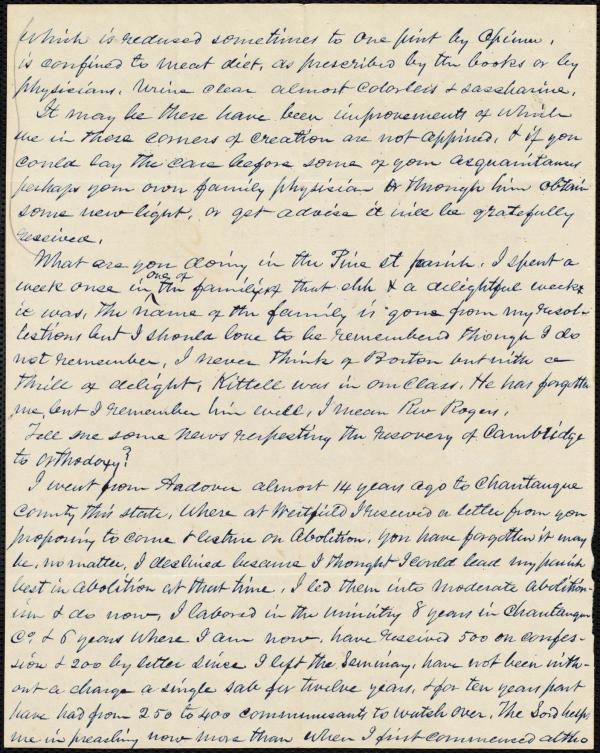 which is reduced sometimes to one pint by Opium,
is confined to meat diet, as prescribed by the books or by
physicians. Urine clear almost colorless & saccharine.
It may be there have been improvements of which
we in these corners of creation are not apprised, & if you
could lay the case before some of your acquaintances
perhaps your own family physician or through him obtain
some new light, or get advise it will be gratefully
received.
What are you doing in the Pine st parish. I spent a
week once in one of the familys of that chh & a delightful week
it was, the name of the family is gone from my recol-
lections but I should love to be remembered though I do
not remember. I never think of Boston but with a
thrill of delight, Kittell was in our Class. He has forgotten
me, but I remember him well, I mean Rev Rogers.
Tell me some news respecting the recovery of Cambridge
to orthodoxy?
I went from Andover almost 14 years ago to Chautauque
County this state, where at Westfield I received a letter from you
proposing to come & lecture on Abolition, you have forgotten it may
be, no matter, I declined because I thought I could lead my parish
best in abolition at that time, I led them into moderate abolition-
ism & do now, I labored in the ministry 8 years in Chautauque
Co. & 6 years where I am now, have received 500 on confes-
sion & 200 by letter since I left the Seminary, have not been with-
out a charge a single sab for twelve years, & for ten years past
have had from 250 to 400 communicants to watch over, The Lord helps
me in preaching now more than when I first commenced altho